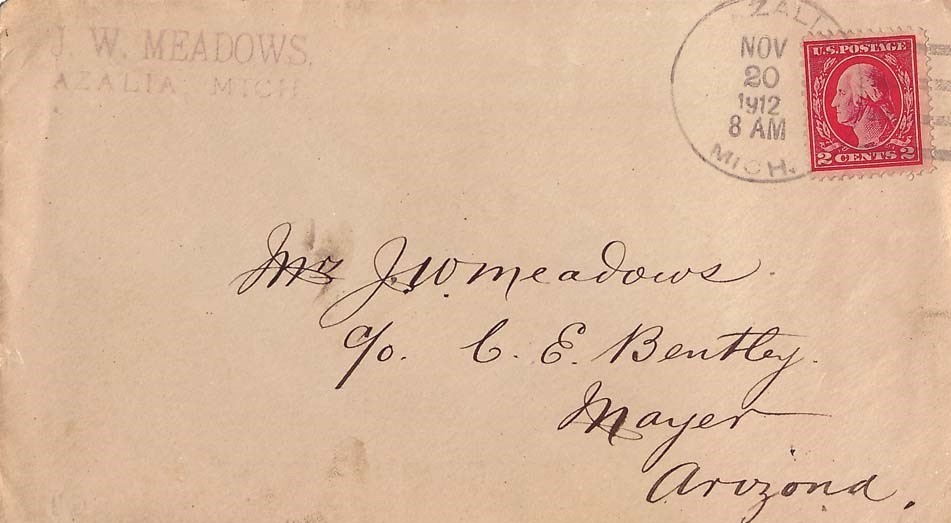 J. W. MEADOWS,
AZALIA, MICH
ZALI
NOV
20
1912
8 AM
MICH.
U.S. POSTAGE
2 CENTS 2
Mr J. W. Meadows.
c/o. C. E. Bentley.
Mayer
Arizona.